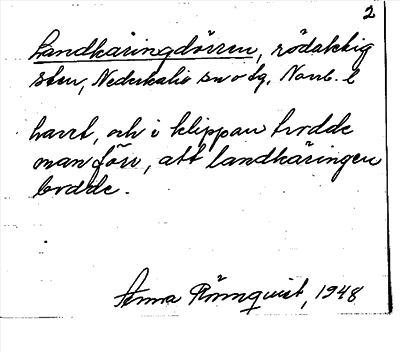 2
Landkäringdörren, rödaktig
sten, Nederkalix sn o tg, Norrb. l
havet, och i klippan trodde
man förr, att landkäringen
bodde.
Anna Rönnquist, 1948